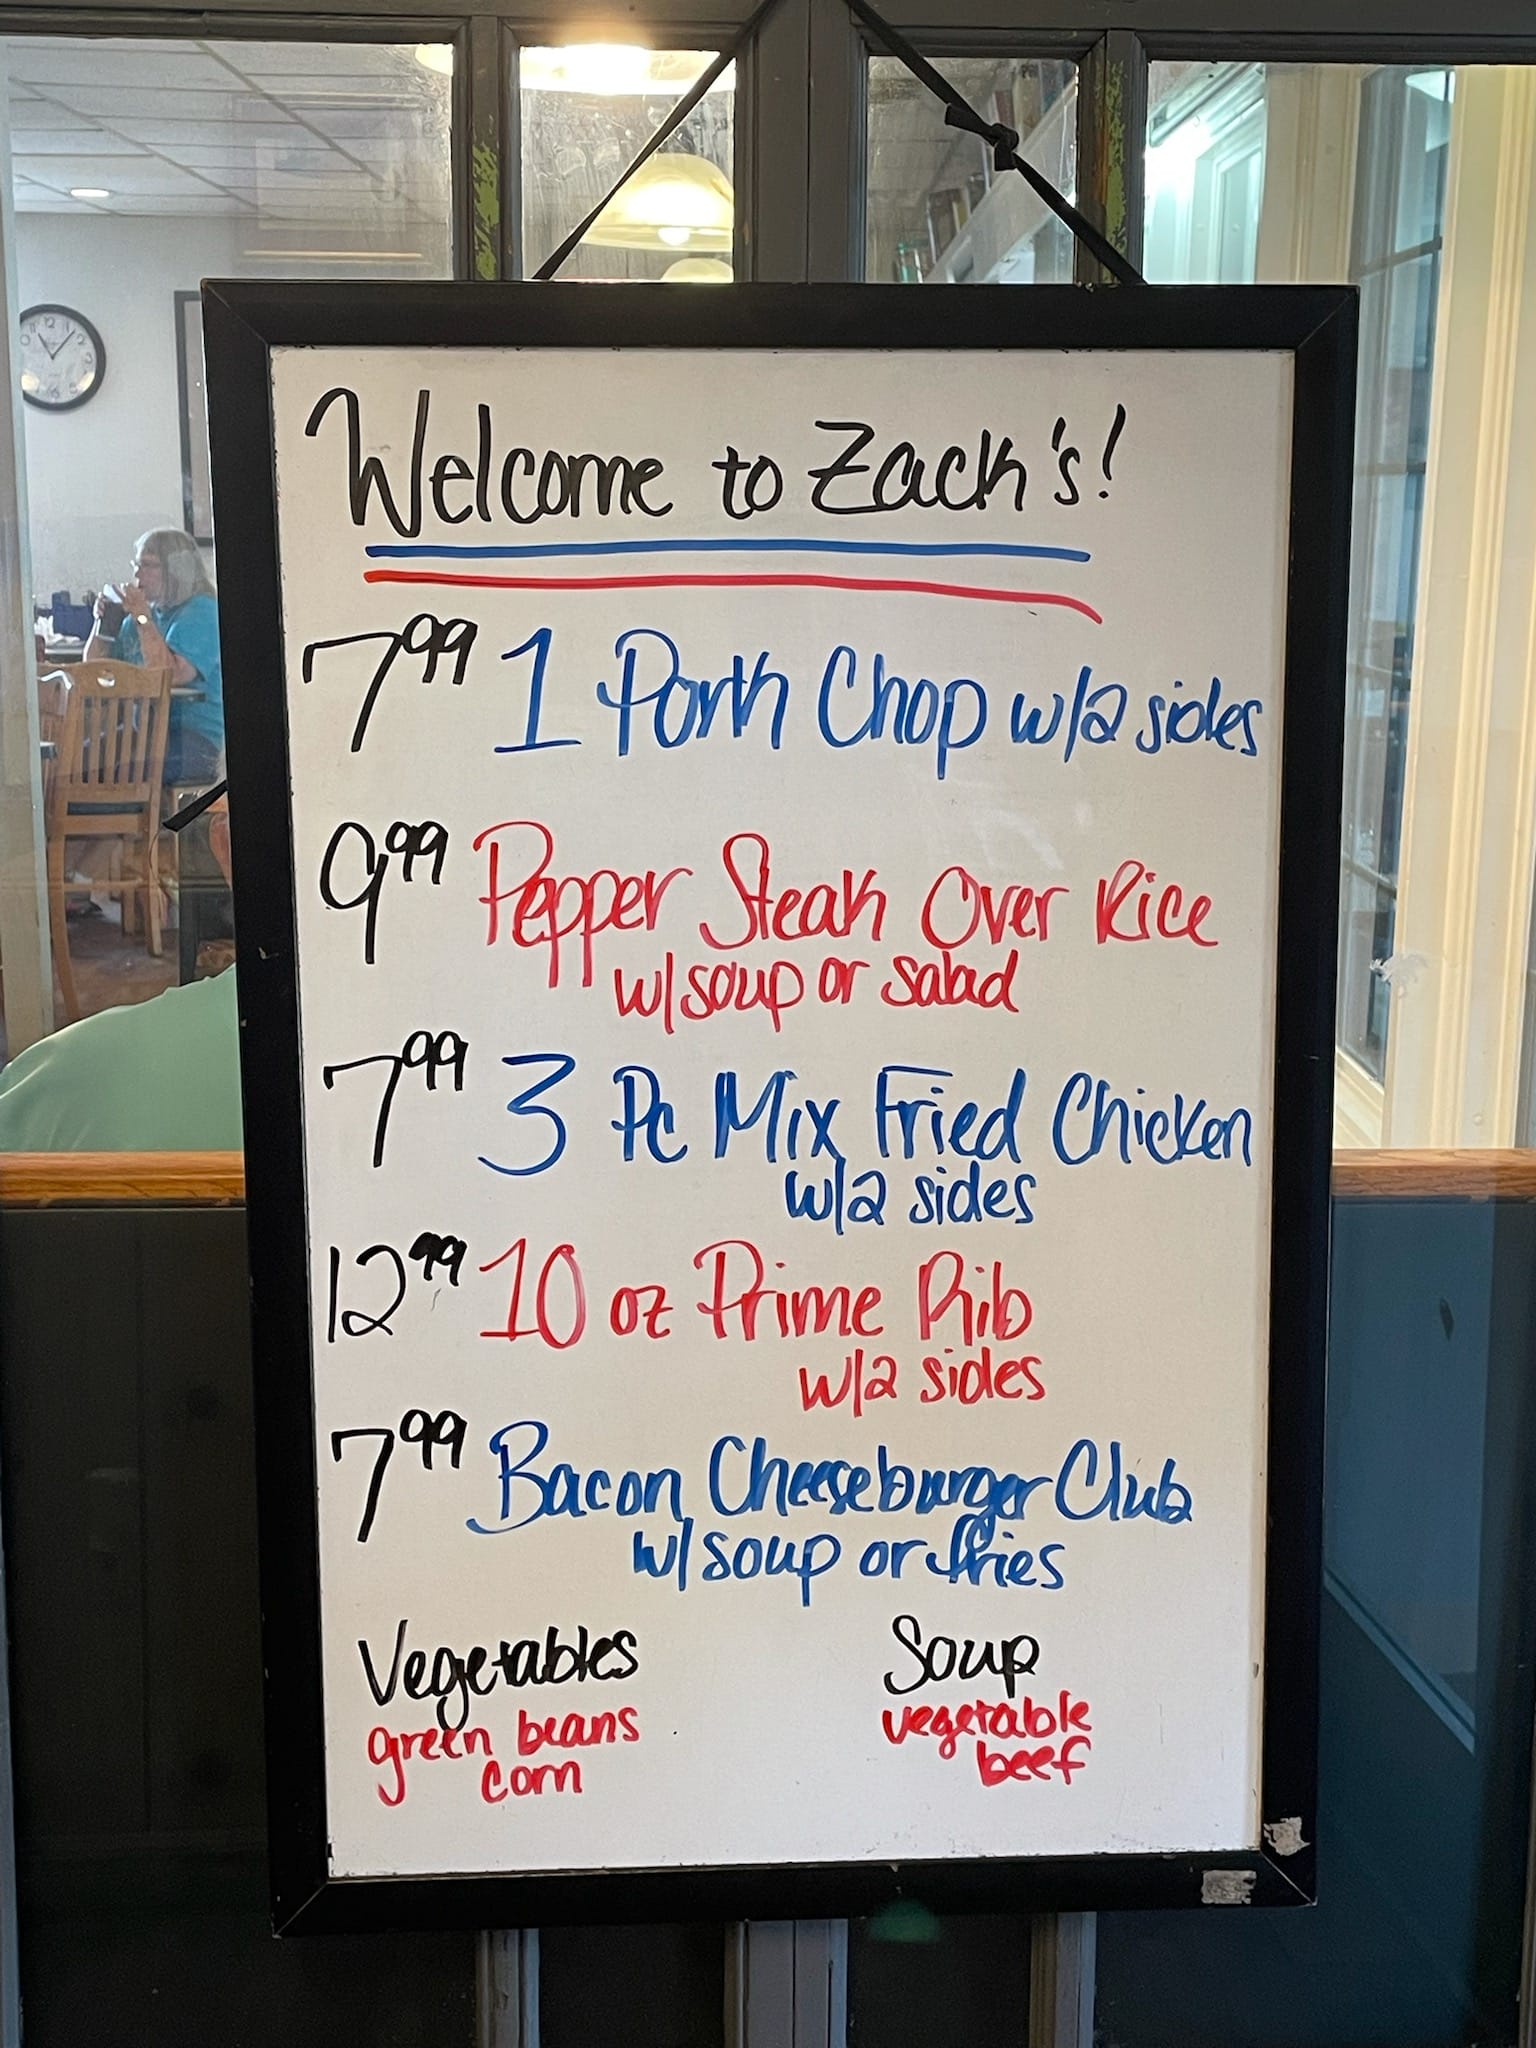 Welcome to Zack's!
7.99 1 Pork Chop w/2 sides
9.99 Pepper Steak Over Rice
w/soup or salad
7.99 3 Pc Mix Fried Chicken
w/2 sides
12.99 10 oz Prime Rib
w/2 sides
7.99 Bacon Cheeseburger Club
w/soup or fries
Vegetables
green beans
corn
Soup
vegetable
beef